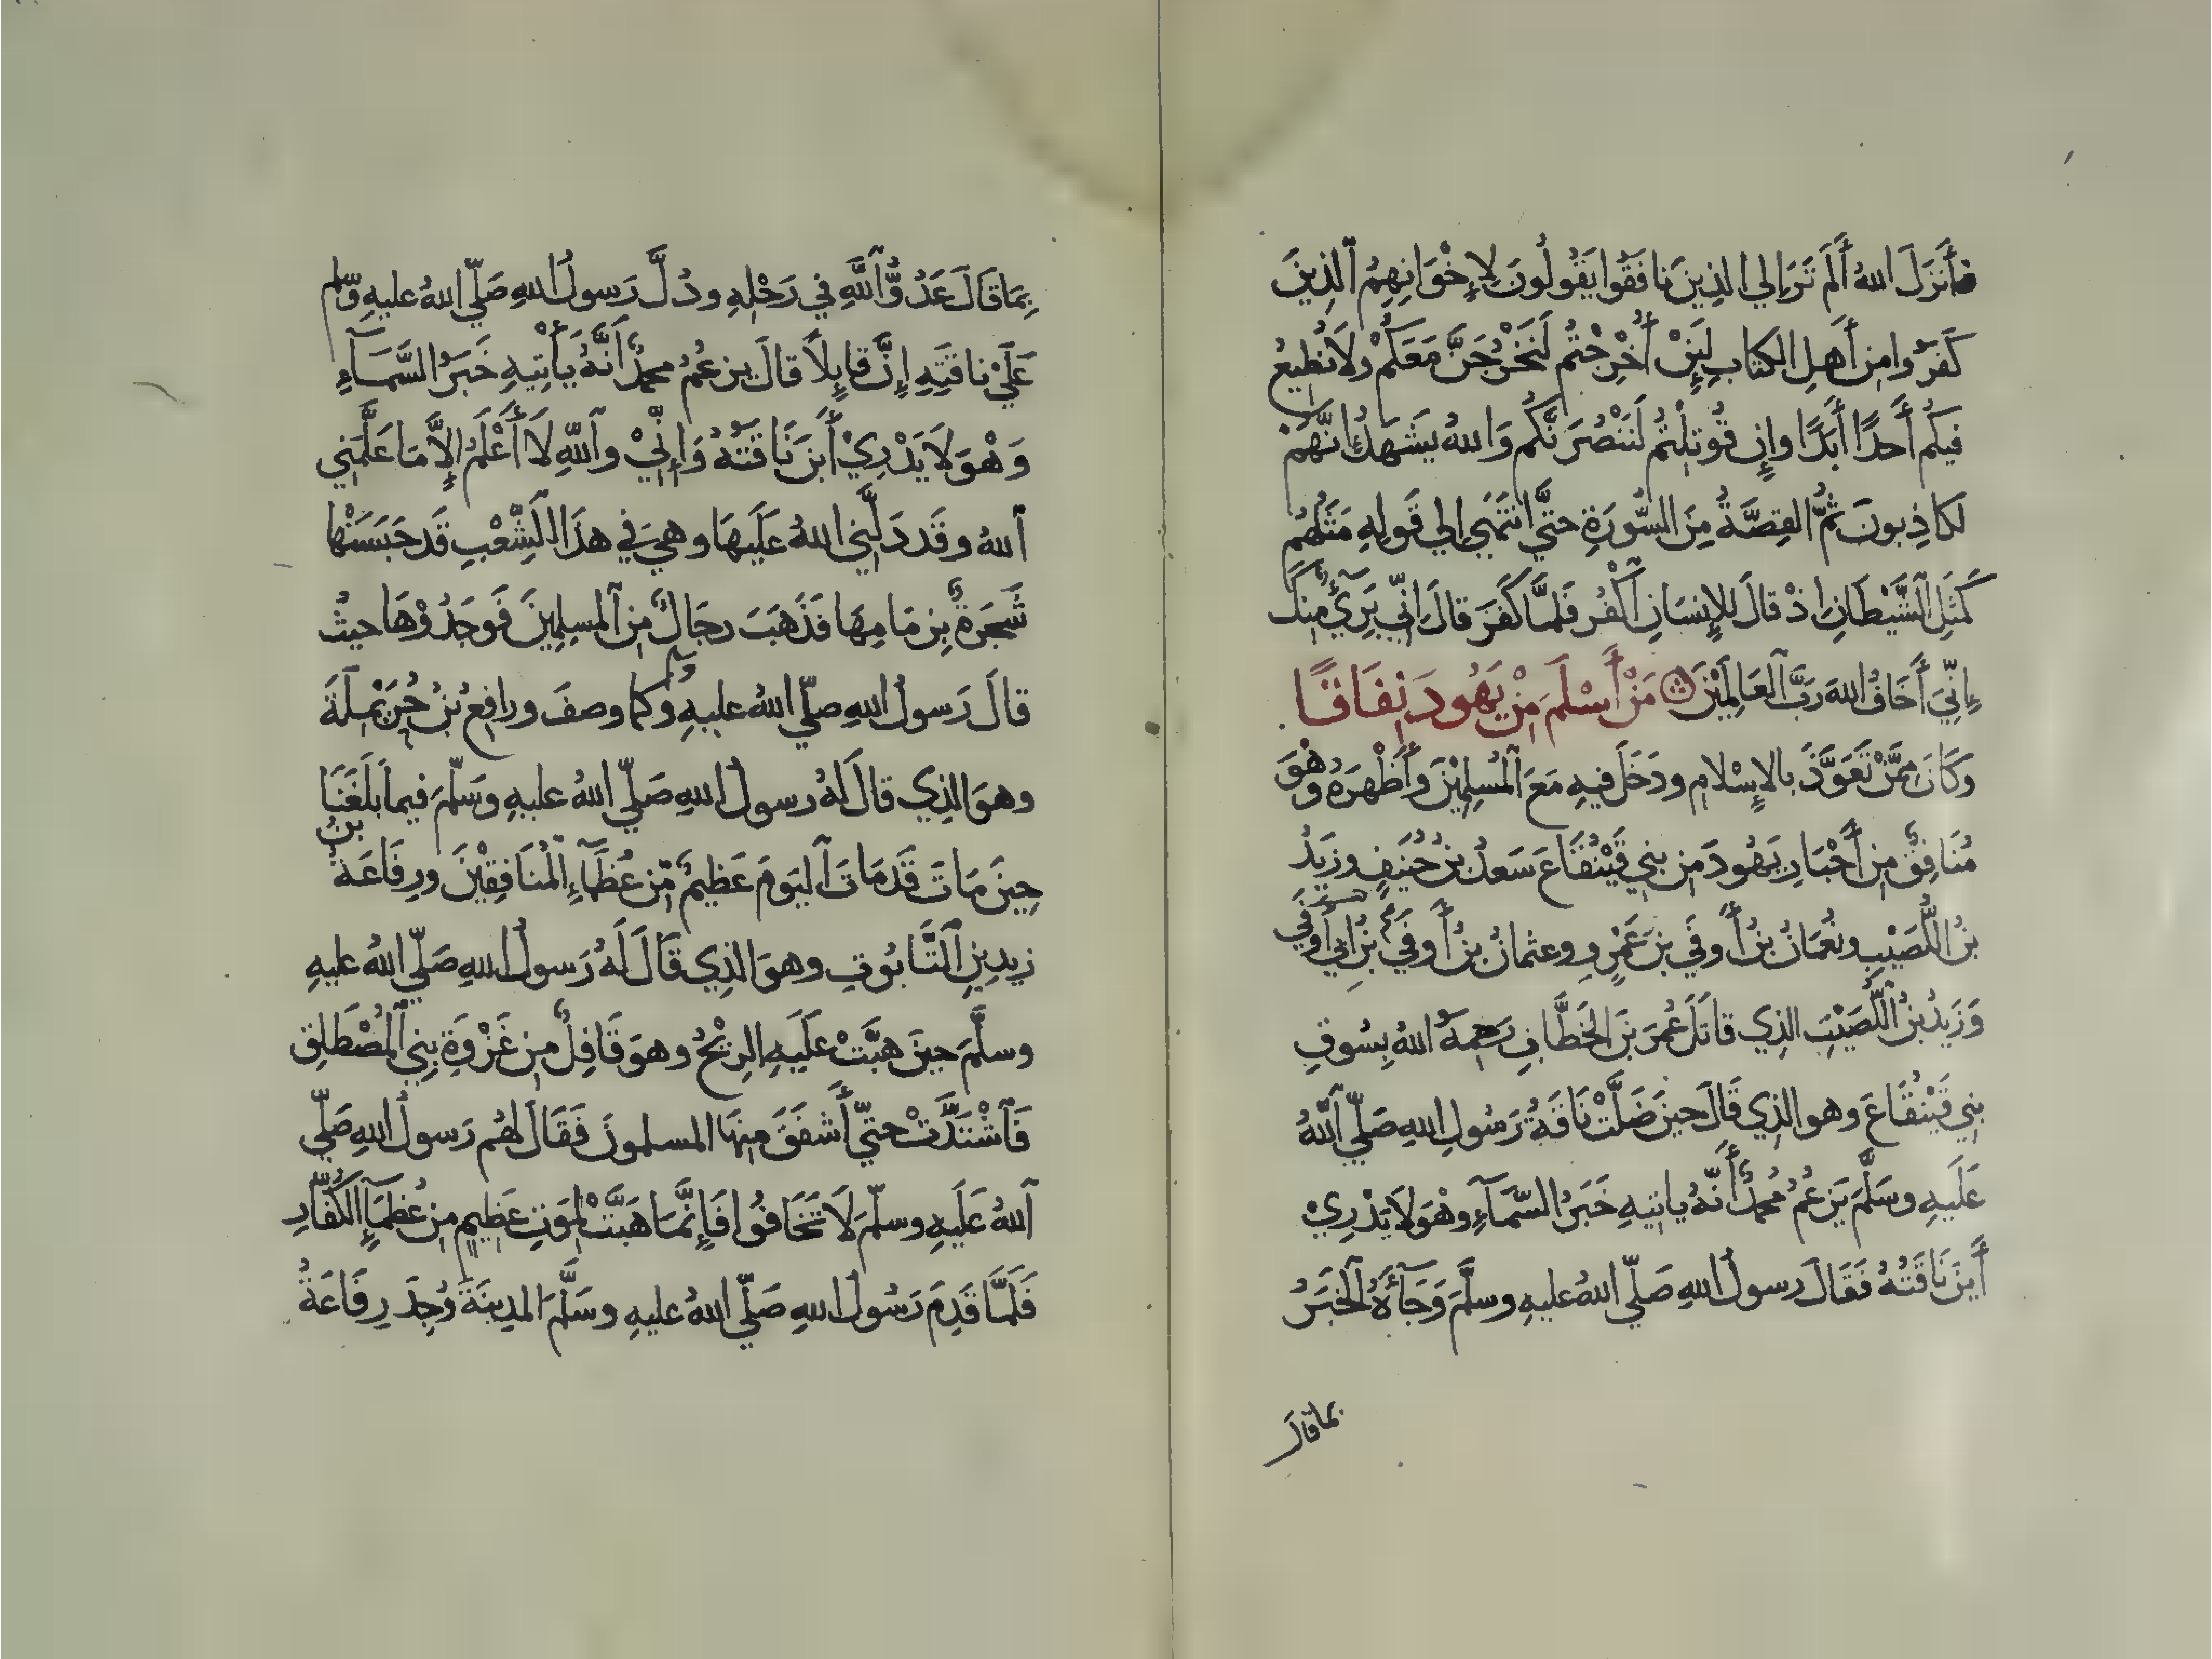 فأَنزَلَ اللهُ أَلَم تَرَ إِلي الذِينَ نافَقُوا يَقُولُونَ لِإِخْوَانِهِمُ ٱلذِينَ
كَفَرُوا مِن أَهلِ الكتابِ لَئِنْ أُخْرِجْتُم لَنَخْرُجَنَّ مَعَكُمْ ولَا نُطِيعُ
فيكُم أَحدًا أَبَدًا وإِن قُوتِلْتُم لَنَنْصُرَنَّكُم وَاللهُ يَشهَدُ إِنَّهُمْ
لكاذِبونَ ثُمَّ القِصَّةُ مِنَ السُّورَةِ حتَّى انتَهَي إِلي قَولِهِ مَثَلُهُم
كَمَثَلِ ٱلشَّيْطَانِ إِذ قالَ لِلإِنسَانِ ٱكْفُر فَلمَّا كَفَرَ قالَ إِنّي بَرِيٓءٌ مِنكَ
إِنّيَ أَخَافُ اللهَ رَبَّ ٱلعَالَمِيْنَ ۞ مَنْ أَسْلَمَ مِنْ يَهُودَ نِفَاقًا
وَكَانَ مِمَّنْ تَعَوَّذَ بالإِسْلامِ ودَخَلَ فيهِ مَعَ ٱلمُسلِمِيْنَ وأَظْهَرَهُ وهُوَ
مُنَافِقٌ مِن أَحْبَارِ يَهُودَ مِن بني قَيْنُقَاعَ سَعدُ بنُ حُنَيفٍ وزَيدُ
بنُ اللُّصَيْبِ ونُعْمَانُ بنُ أَوفَي بنِ عَمْرٍو وعثمانُ بنُ أَوفَي بنُ أَبي أَوفَي
وَزَيدُ بنُ ٱللُّصَيْبِ الذِي قاتَلَ عُمَرَ بنَ الخَطَّابِ رَحِمَهُ اللهُ بِسُوقِ
بني قَيْنُقَاعَ وهو الذِي قَالَ حينَ ضَلَّتْ نَاقَةُ رَسُولِ اللهِ صَلّي ٱللّٰهُ
عَلَيهِ وسَلَّمَ يَزعُمُ مُحمدٌ أَنَّهُ ياتيهِ خَبَرُ السَّمَآءِ وهْوَ لَا يَدْرِيْ
أَينَ نَاقَتُهُ فَقَالَ رسولُ اللهِ صَلّي اللهُ عليهِ وسلَّمَ وَجَآءَهُ ٱلخَبَرُ
بما قال
بِمَا قَالَ عَدُوُّ ٱللّٰهِ في رَحْلِهِ ودُلَّ رَسولُ اللهِ صَلّي اللهُ عليهِ وسّلم
عَلَيْ ناقَتِهِ إِنَّ قايِلاً قالَ يزعمُ محمدٌ أَنَّهُ يَأْتِيهِ خَبَرُ السَّمَآءِ
وَهْوَ لَا يَدْرِيْ أَينَ نَاقَتُهُ وَإِنّيْ وٱللّهِ لَا أَعْلَمُ إِلاَّ مَا عَلَّمَني
ٱللهُ وقَد دَلَّني اللهُ عَلَيهَا وهيَ في هذَا الشِّعْبِ قَد حَبَسَتْها
شَجَرةٌ بِزِمَامِهَا فَذَهَبَ رجَالٌ مِن ٱلمسلِمِينَ فَوَجَدُوْهَا حيثُ
قالَ رَسولُ اللهِ صلّي اللهُ عليهِ وكما وصفَ ورافِعُ بنُ حُرَيْمِلَةَ
وهوَ الذِي قالَ لهُ رسولُ اللهِ صَلّي اللهُ عليهِ وسَلّمَ فيما بَلَغَنَا
حِينَ مَاتَ قَد مَاتَ ٱليَومَ عَظيمٌ مّن عُظَمَآءِ ٱلْمُنَافِقِيْنَ ورِفَاعَةُ بنُ
زيدِ بنِ ٱلتَّابُوتِ وهوَ الذِي قَالَ لَهُ رَسولُ اللهِ صَلّي اللهُ عليهِ
وسلَّمَ حينَ هبَّتْ عَلَيهِ الرِيْحُ وهوَ قَافِلٌ مِن غَزْوَةِ بني ٱلمُصْطَلِقِ
فَٱشْتَدَّتْ حتيّ أَشفَقَ مِنهَا المسلمونَ فَقَالَ لهُم رَسولُ اللهِ صَلّي
ٱللهُ عَلَيهِ وسلّمَ لَا تَخَافُوا فَإِنَّمَا هَبَّتْ لِمَوتِ عَظِيمٍ مِن عُظَمَآءِ الكُفّارِ
فَلَمَّا قَدِمَ رَسُولُ اللهِ صَلّي اللهُ عليهِ وسَلَّمَ المدِينَةَ وُجِدَ رِفَاعَةُ